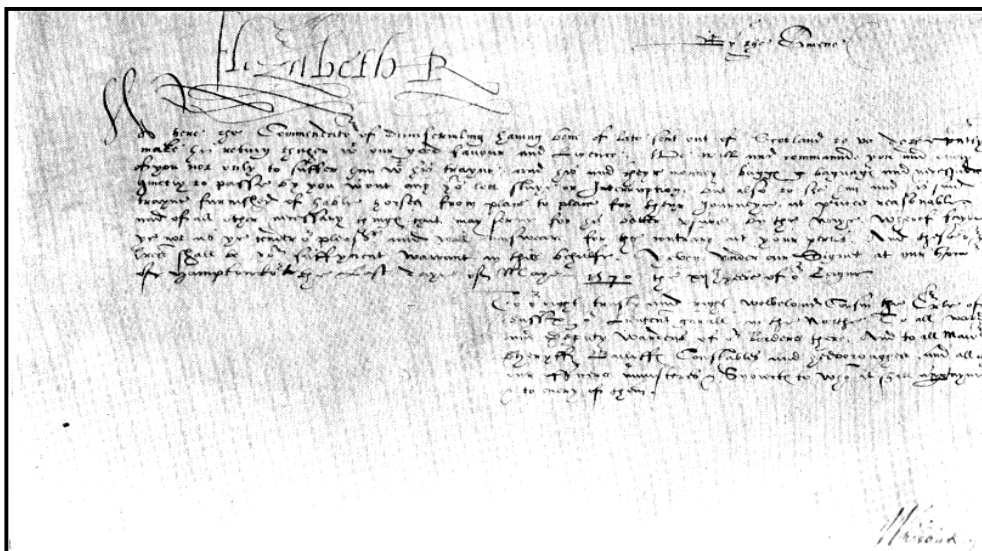 Elizabeth R
By the Quene
Where the Commendator of Dunfermling having bin of late sent out of Scotland to us doth presently
make his return thither wt our good favour and Licence. We will and command you and every
of you not only to suffer him wt his trayne and his and theyre money bagges baggage and necessaries
quietly to passe by you wtout any yor lett staye or Interruption, But also to see him and his said
trayne furnished of hable horses from place to place for theyr journeye at prices reasonable
and of all other necessary things that may serve for his better by the waye Wherof fayle
ye not as ye tender or pleasr and will answeare for the contrary at your perils. And these or
lres shalbe yor sufficyent warrant in this behalfe. Yeven under our Signet at our honor
of Hampton the Last daye of Maye 1570 the xijth yeere of or Reigne
To or right trusty and right welbeloved Cousin the Erle of
Sussex or Lieutent genrall in the North To all wardens
and deputy wardens of or borders there And to all Maiors
Sheryffs Bailiffs Constables and hedboroughes and all or
our officers ministeres & Subjects to whom it shall
& to every of them.